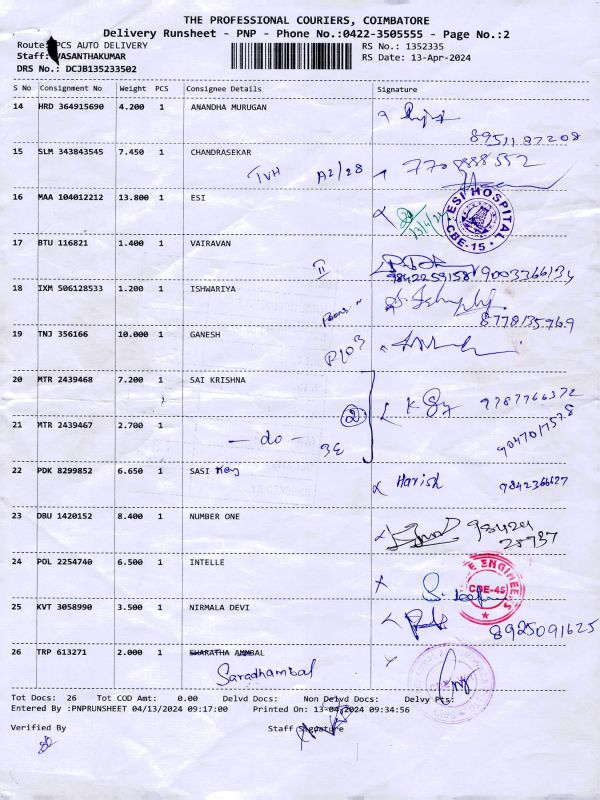 THE PROFESSIONAL COURIERS, COIMBATORE
Delivery Runsheet - PNP - Phone No.:0422-3505555 - Page No.:2
Route: PCS AUTO DELIVERY RS No.: 1352335
Staff: VASANTHAKUMAR RS Date: 13-Apr-2024
DRS No.: DCJB135233502
S No Consignment No Weight PCS Consignee Details Signature
14 HRD 364915690 4.200 1 ANANDHA MURUGAN
8951187208
15 SLM 343843545 7.450 1 CHANDRASEKAR
TVH A2/28 7708888552
16 MAA 104012212 13.800 1 ESI
13/4/24 ESI HOSPITAL CBE-15
17 BTU 116821 1.400 1 VAIRAVAN
II 9842259158 9003366134
18 IXM 506128533 1.200 1 ISHWARIYA
8778135769
19 TNJ 356166 10.000 1 GANESH
P103
20 MTR 2439468 7.200 1 SAI KRISHNA
2 9787766372
21 MTR 2439467 2.700 1 - do - 9047017578
3E
22 PDK 8299852 6.650 1 SASI Harish 9842366627
23 DBU 1420152 8.400 1 NUMBER ONE
98424
28737
24 POL 2254740 6.500 1 INTELLE
CBE-45
25 KVT 3058990 3.500 1 NIRMALA DEVI
8925091625
26 TRP 613271 2.000 1 SHARATHA AMMBAL
Saradhambal
Tot Docs: 26 Tot COD Amt: 0.00 Delvd Docs: Non Delvd Docs: Delvy Pts:
Entered By :PNPRUNSHEET 04/13/2024 09:17:00 Printed On: 13-04-2024 09:34:56
Verified By Staff Signature